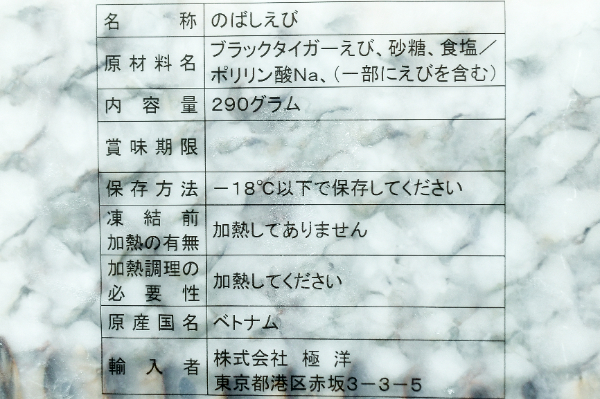 名称 のばしえび
原材料名 ブラックタイガーえび、砂糖、食塩／
ポリリン酸Na、（一部にえびを含む）
内容量 290グラム
賞味期限
保存方法 －18℃以下で保存してください
凍結前
加熱の有無 加熱してありません
加熱調理の
必要性 加熱してください
原産国名 ベトナム
輸入者 株式会社 極洋
東京都港区赤坂3－3－5